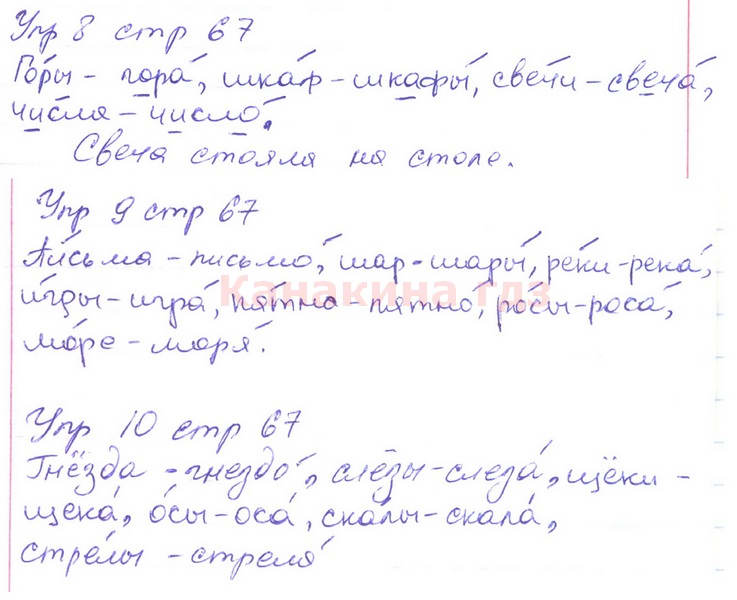 Упр 8 стр 67
Го́ры - гора́, шка́ф - шкафы́, све́чи - свеча́,
чи́сла - число́.
Свеча стояла на столе.
Упр 9 стр 67
Пи́сьма - письмо́, шар - шары́, ре́ки - река́,
и́гры - игра́, пя́тна - пятно́, ро́сы - роса́,
мо́ре - моря́.
Канакина гдз
Упр 10 стр 67
Гнёзда - гнездо́, слёзы - слеза́, щёки -
щека́, о́сы - оса́, ска́лы - скала́,
стре́лы - стрела́